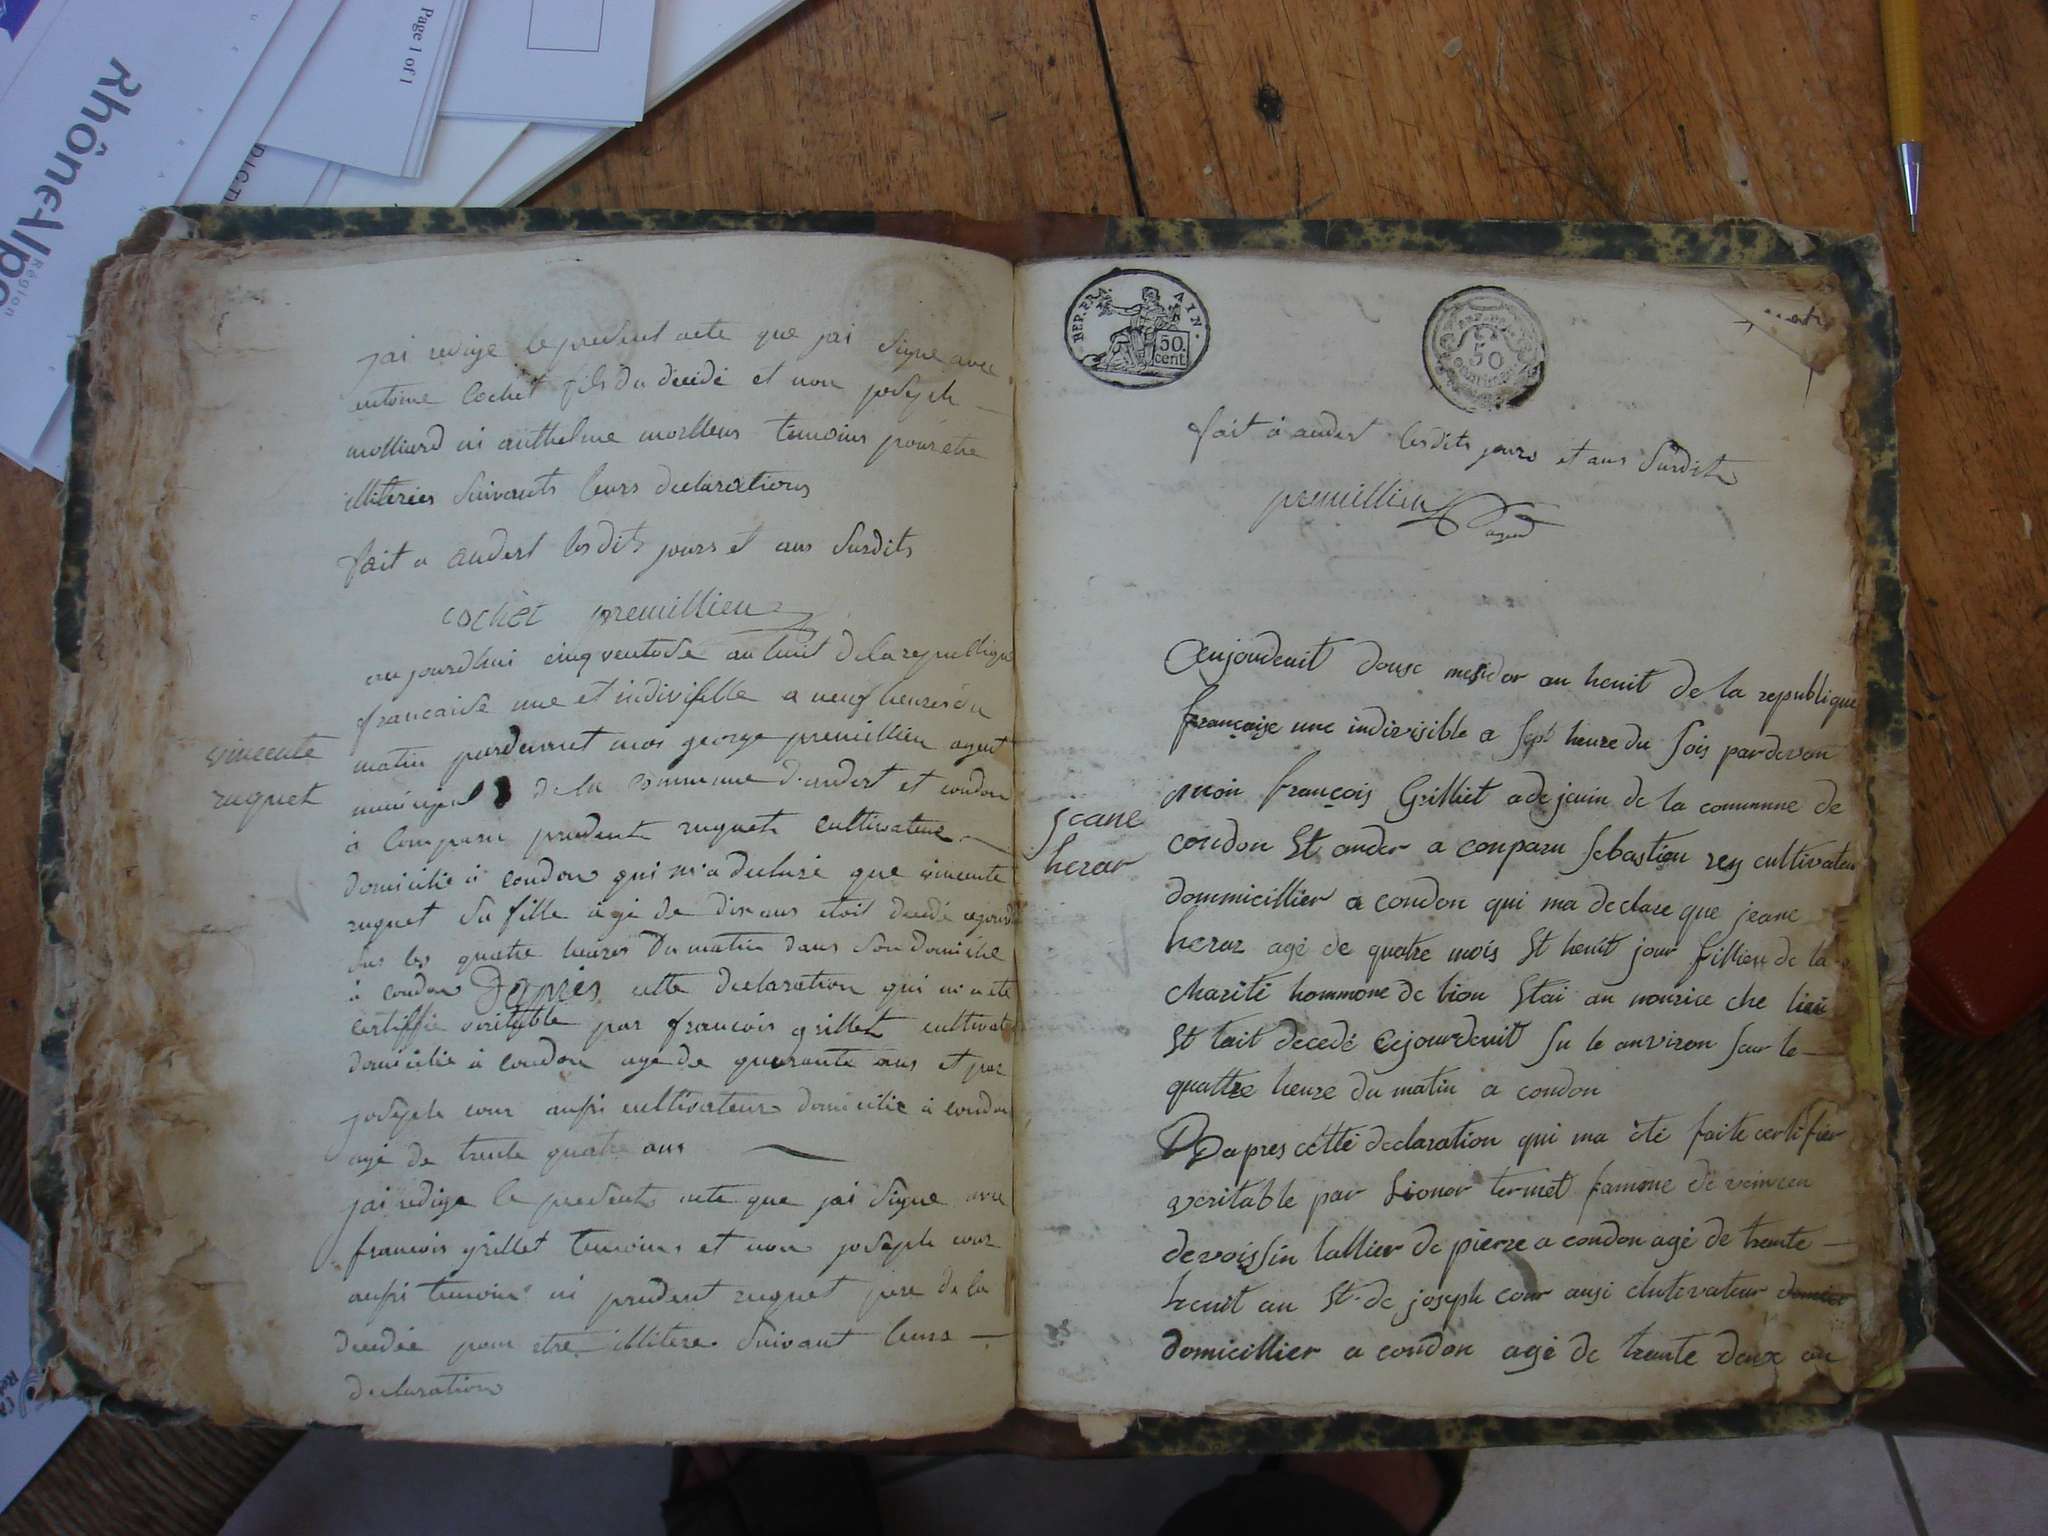 Page 1 of 1
RhôneAlpes
Région
jai redige le present acte que jai signe avec
antoine cochet fils du decede et non joseph
molliard ni anthelme morlleus temoins pour etre
illiterées suivants leurs declarations
fait a andert lesdits jours et ans susdits
cochet premillieu
aujourdhui cinq ventose an huit de la republique
francaise une et indivisible a neuf heures du
matin pardevant moi george premillieu agent
municipal de la commune d'andert et condon
à comparu prudent ruquet cultivateur
domicilié à condon qui m'a declaré que vincente
ruquet sa fille agé de dix ans etoit decedé cejourd
sur les quatre heures du matin dans son domicile
à condon Dapres cette declaration qui m'a ete
certiffié veritable par francois grillet cultivat
domicilié à condon age de quarante ans et par
joseph cour aussi cultivateur domicilié à condon
agé de trente quatre ans
jai redige le present acte que jai signe avec
francois grillet temoins et non joseph cour
aussi temoins ni prudent ruquet pere de la
decedée pour etre illiteré suivant leurs
declarations
vincente
ruquet
REP. FRA. AIN.
50 cent
50
fait à andert lesdits jours et ans susdits
premillieu agent
Aujourdeuit douse mesidor an heuit de la republique
françaize une indivisible a sept heure du sois pardevan
moin françois Grilliet adejouin de la comunne de
condon St ander a conparu sebastien rey cultivateur
dommicillier a condon qui ma declare que jeane
heraz agé de quatre mois St heuit jour fillieu de la
charité hommone de bion Stai an nourice che lieu
St tait decedé Cejourdeuit su le anviron seur le
quattre heure du matin a condon
Dapres cétté declaration qui ma été faite certifier
veritable par Lionor termet famme de veincen
devoissin lallier de pierre a condon agé de trente
heuit an St de joseph cour ausi clutevateur
domicillier a condon agé de trente deux an
jeane
herar